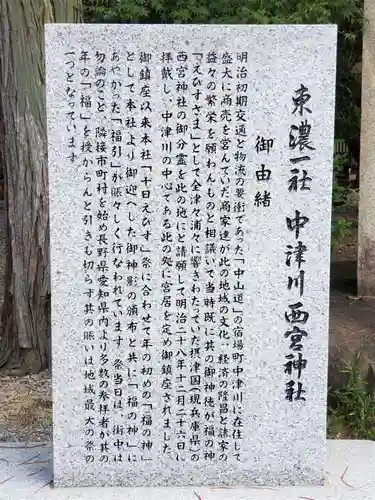 東濃一社 中津川西宮神社
御由緒
明治初期交通と物流の要衝であった「中山道」の宿場町中津川に在住して
盛大に商売を営んでいた商家達が此の地域の文化、経済の隆昌と諸家の
益々の繁栄を願わんものと相議いて当時既に其の御神徳が福の神
「えびすさま」として全津々浦々に響きわたっていた摂津国(現兵庫県)の
西宮神社の御分霊を此の地にと請願して明治二十八年十二月二十六日に
拝戴し、中津川の中心である此の処に宮居を定め御鎮座されました。
御鎮座以来本社「十日えびす」祭に合わせて年の初めの「福の神」
として本社より御迎へした御神影の頒布と共に「福の神」に
あやかった「福引」が賑々しく行なわれています。祭当日は、街中は
勿論のこと、隣接市町村を始め長野県愛知県内より多数の参拝者が其の
年の「福」を授からんと引きも切らず其の賑いは地域最大の祭の
一つとなっています。